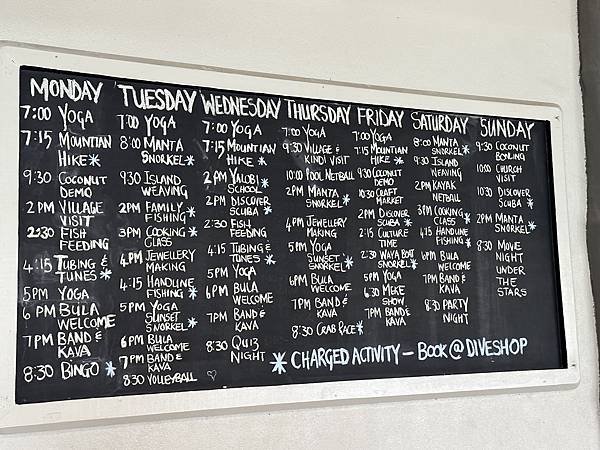 MONDAY
7:00 YOGA
7:15 MOUNTIAN
HIKE*
9:30 COCONUT
DEMO
2PM VILLAGE
VISIT
2:30 FISH
FEEDING
4:15 TUBING &
TUNES *
5PM YOGA
6PM BULA
WELCOME
7PM BAND &
KAVA
8:30 BINGO *
TUESDAY
7:00 YOGA
8:00 MANTA
SNORKEL *
9:30 ISLAND
WEAVING
2PM FAMILY
FISHING *
3PM COOKING *
CLASS
4PM JEWELLERY
MAKING
4:15 HANDLINE
FISHING *
5PM YOGA
SUNSET
SNORKEL *
6PM BULA
WELCOME
7PM BAND &
KAVA
8:30 VOLLEYBALL ♡
WEDNESDAY
7:00 YOGA
7:15 MOUNTIAN
HIKE *
2PM YALOBI
SCHOOL *
2PM DISCOVER
SCUBA *
2:30 FISH
FEEDING
4:15 TUBING &
TUNES *
5PM YOGA
6PM BULA
WELCOME
7PM BAND &
KAVA
8:30 QUIZ
NIGHT
THURSDAY
7:00 YOGA
9:30 VILLAGE &
KINDI VISIT
10:00 POOL NETBALL
2PM MANTA
SNORKEL *
4PM JEWELLERY
MAKING
5PM YOGA
SUNSET
SNORKEL *
6PM BULA
WELCOME
7PM BAND &
KAVA
8:30 CRAB RACE *
FRIDAY
7:00 YOGA
7:15 MOUNTIAN
HIKE *
9:30 COCONUT
DEMO
10:30 CRAFT
MARKET
2PM DISCOVER
SCUBA *
2:15 CULTURE
TIME
2:30 WAYA BOAT
SNORKEL *
5PM YOGA
6:30 MEKE
SHOW
7PM BAND &
KAVA
SATURDAY
8:00 MANTA
SNORKEL *
9:30 ISLAND
WEAVING
2PM KAYAK
NETBALL
3PM COOKING
CLASS *
4:15 HANDLINE
FISHING *
6PM BULA
WELCOME
7PM BAND &
KAVA
8:30 PARTY
NIGHT
SUNDAY
9:30 COCONUT
BOWLING
10:00 CHURCH
VISIT
10:30 DISCOVER
SCUBA *
2PM MANTA
SNORKEL *
8:30 MOVIE
NIGHT
UNDER
THE
STARS
* CHARGED ACTIVITY – BOOK @ DIVESHOP